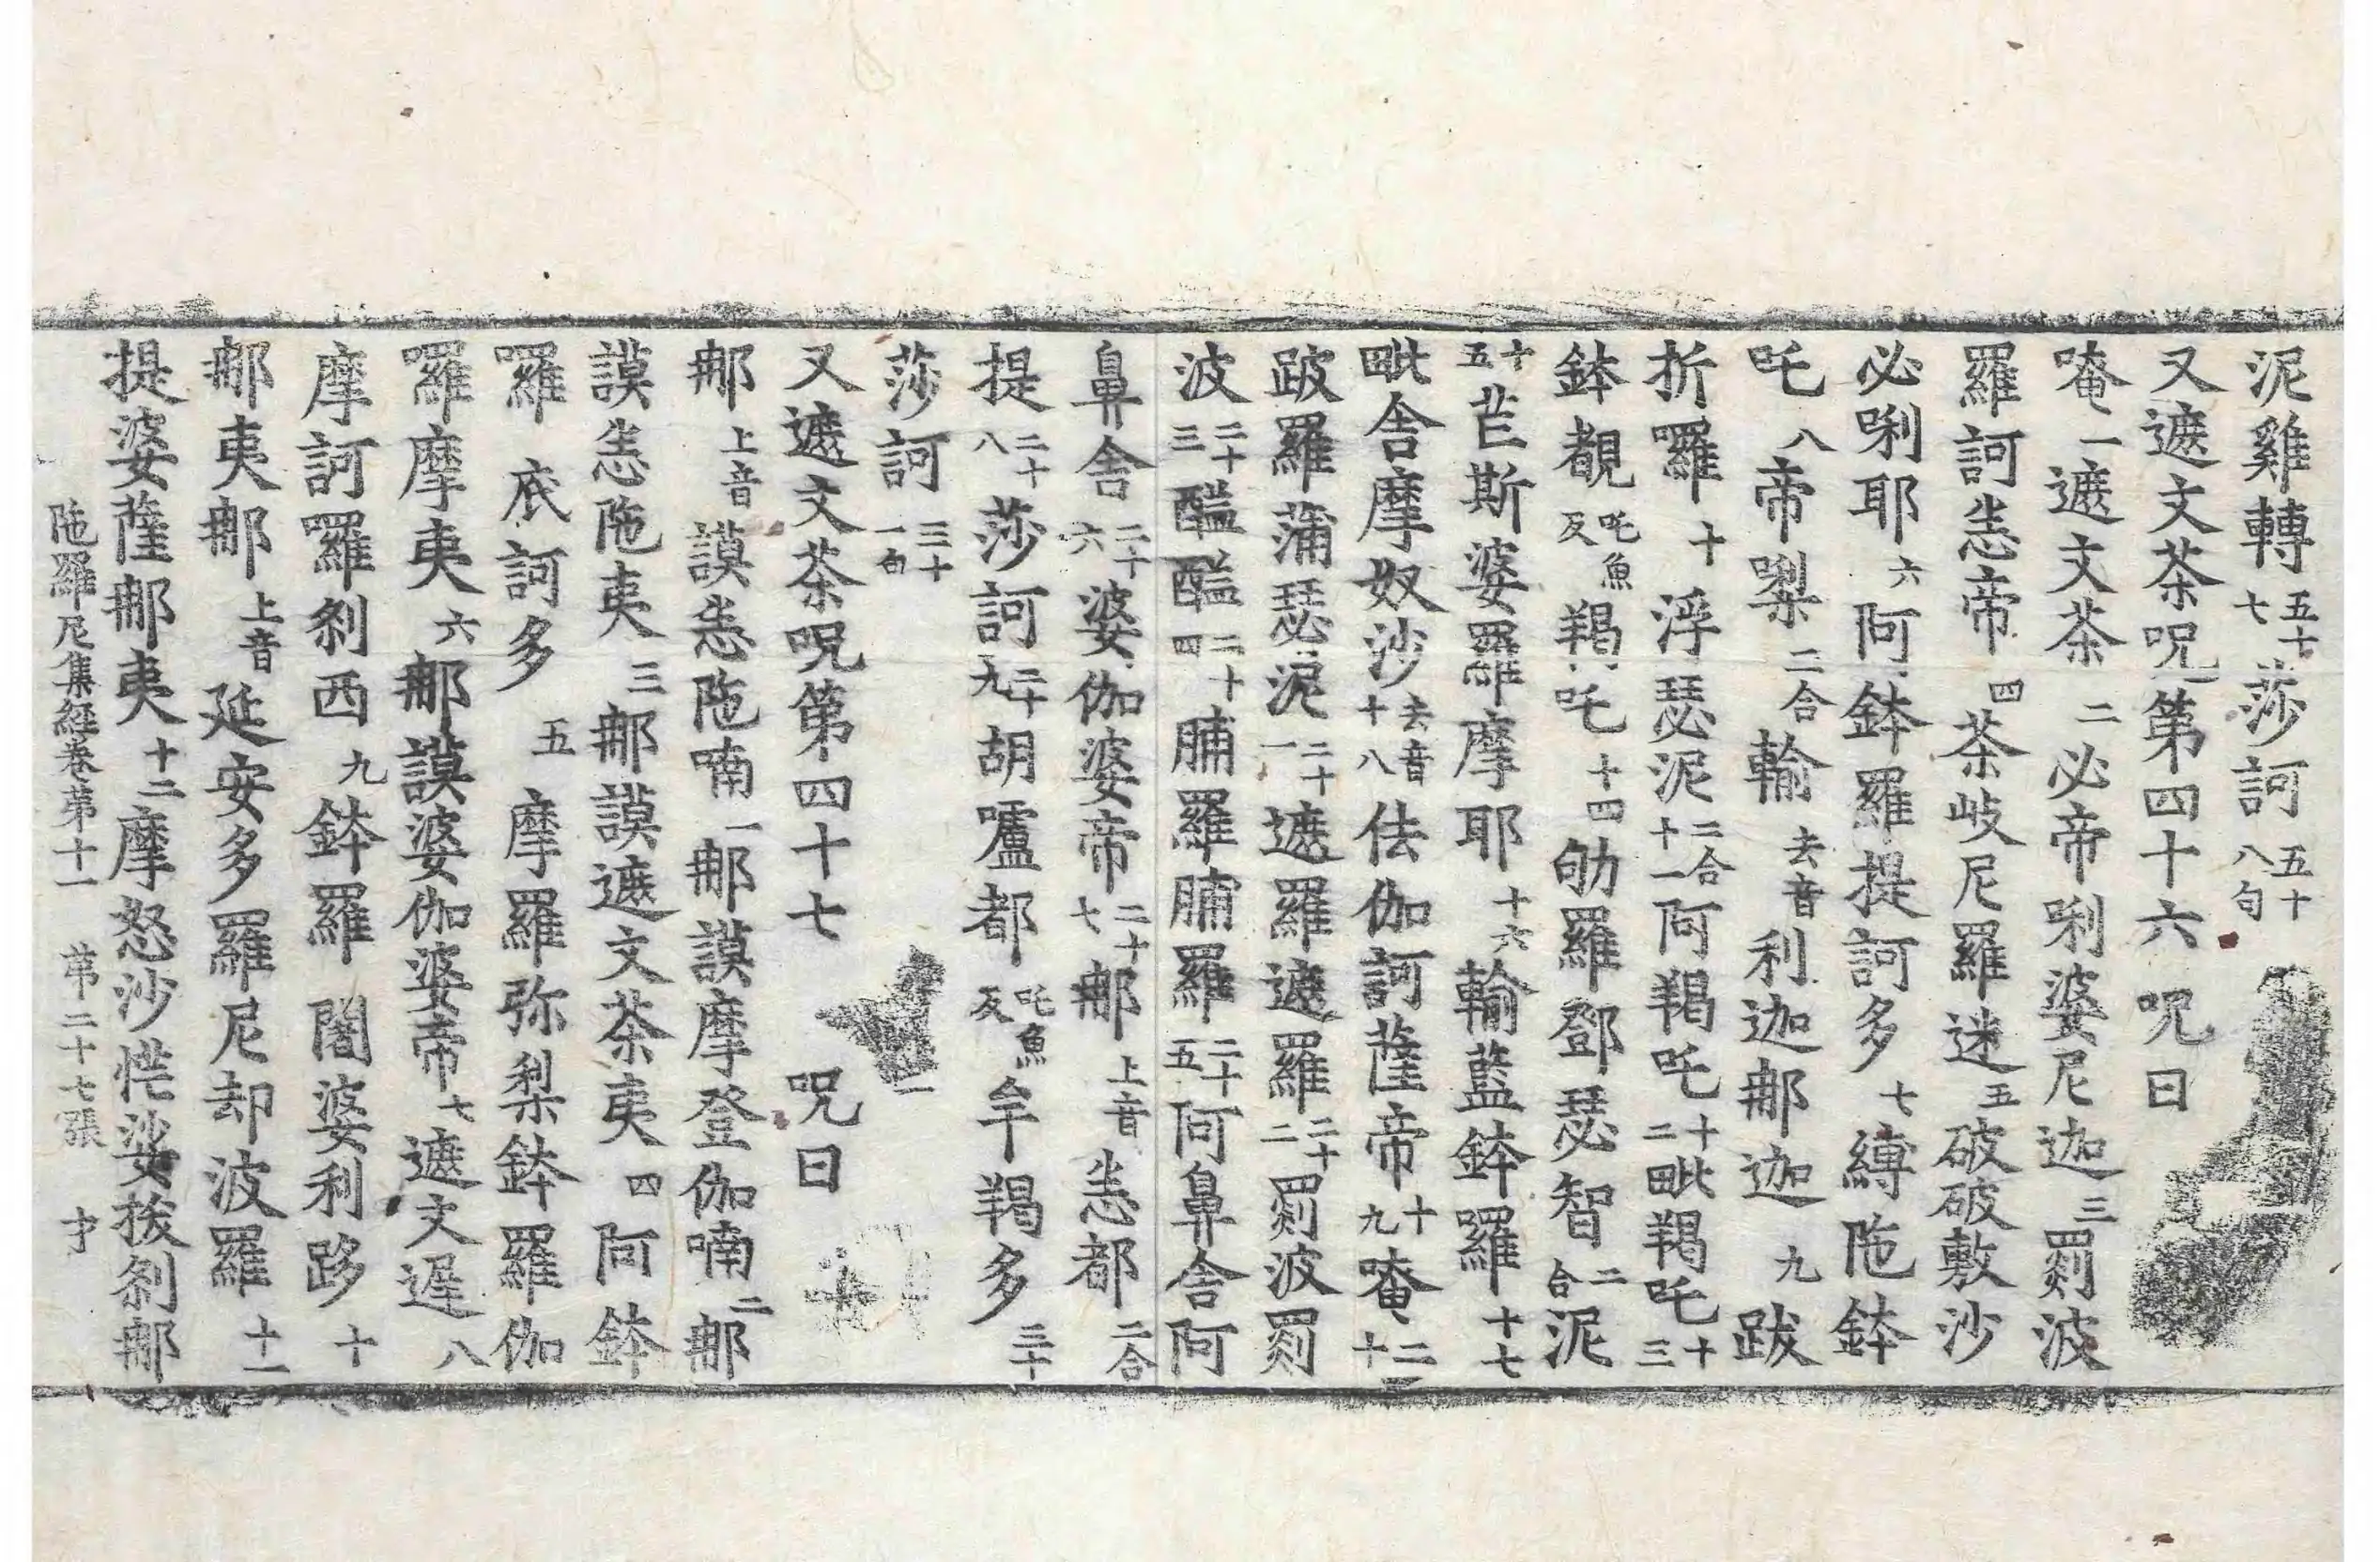 泥雞轉五十七莎訶五十八句
又遮文茶呪第四十六 呪曰
唵一遮文茶二必帝唎婆尼迦三罽波
羅訶恙帝四茶岐尼羅迷五破破敷沙
必唎耶六阿鉢羅提訶多七縛陁鉢
吒八帝㗚二合輸去音利迦郍迦九跋
折囉十浮瑟泥二合十一阿羯吒十二毗羯吒十三
鉢覩吒魚反羯吒十四劬羅鄧瑟智二合泥
十五芒斯婆羅摩耶十六輸藍鉢羅十七
毗舍摩奴沙去音十八佉伽訶薩帝十九唵二十
跛羅蒲瑟泥二十一遮羅遮羅二十二罽波罽
波二十三醯醯二十四脯羅脯羅二十五阿鼻舍阿
鼻舍二十六婆伽婆帝二十七郍上音恙都二合
提二十八莎訶二十九胡嚧都吒魚反牟羯多三十
莎訶三十一句
又遮文茶呪第四十七 呪曰
郍上音謨恙陁喃一郍謨摩登伽喃二郍
謨恙陁夷三郍謨遮文茶夷四阿鉢
囉底訶多五摩羅弥梨鉢羅伽
囉摩夷六郍謨婆伽婆帝七遮文遲八
摩訶囉剎西九鉢羅闍婆利跢十
郍夷郍上音延安多羅尼却波羅十一
提婆薩郍夷十二摩怒沙恾娑拔剎郍
陁羅尼集經卷第十一 第二十七張 才